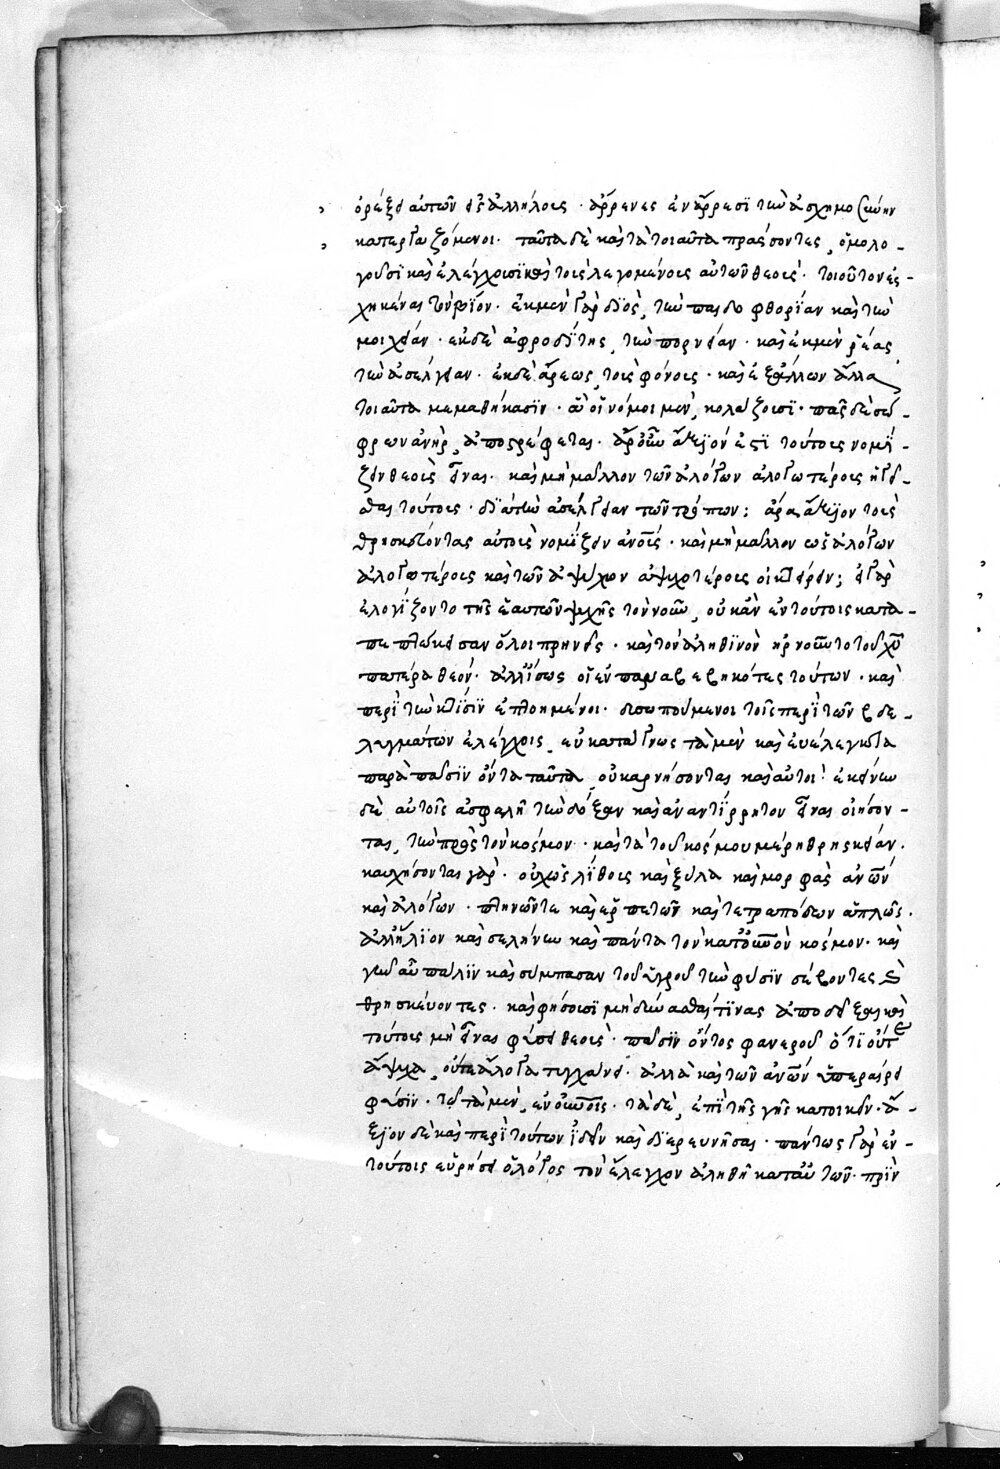 ὀρέξει αὐτῶν εἰς ἀλλήλους · ἄῤῥενες ἐν ἄῤῥεσϊ τὴν ἀσχημοσύνην
κατεργαζόμενοι · ταῦτα δὲ καὶ τὰ τοιαῦτα πράσσοντες, ὁμολο-
γοῦσϊ καὶ ἐλέγχουσϊ καὶ τοὺς λεγομένους αὐτῶν θεοὺς · τοιοῦτον ἐς-
χηκέναι τὸν βίον · ἐκ μὲν γὰρ διὸς, τὴν παιδοφθορΐαν καὶ τὴν
μοιχείαν · ἐκ δὲ ἀφροδΐτης, τὴν πορνείαν · καὶ ἐκ μὲν ῥέας
τὴν ἀσέλγειαν · ἐκ δὲ ἄρεως, τοὺς φόνους · καὶ ἐξ ἄλλων ἄλλα
τοιαῦτα μεμαθήκασϊν · ἃ οἱ νόμοι μὲν, κολάζουσϊ · πᾶς δὲ σώ-
φρων ἀνὴρ, ἀποστρέφεται · ἆρ' οὖν ἄξιόν ἐστϊ τούτους νομΐ-
ζειν θεοὺς εἶναι · καὶ μὴ μᾶλλον τῶν ἀλόγων ἀλογωτέρους ἡγεῖ-
σθαι τούτους · δϊὰ τὴν ἀσέλγειαν τῶν τρόπων; ἆρα ἄξιον τοὺς
θρησκεύοντας αὐτοὺς νομΐζειν ἀνους · καὶ μὴ μᾶλλον ὡς ἀλόγων
ἀλογωτέρους καὶ τῶν ἀψύχων ἀψυχοτέρους οἰκτείρειν; εἰ γὰρ
ἐλογΐζοντο τῆς ἑαυτῶν ψυχῆς τὸν νοῦν, οὐκ ἂν ἐν τούτοις κατα-
πεπτώκεισαν ὅλοι πρηνεῖς · καὶ τὸν ἀληθϊνὸν ἠρνοῦντο τοῦ χυ
πατέρα θεόν · ἀλλ' ἴσως οἱ ἐν παραβεβηκότες τούτων · καὶ
περὶ τὴν κτίσϊν ἐπτοημένοι · δυσωπούμενοι τοῖς περὶ τῶν βδε-
λυγμάτων ἐλέγχοις, εὐκατάγνωστα μὲν καὶ εὐέλεγκτα
παρὰ πᾶσϊν ὄντα ταῦτα, οὐκ ἀρνήσονται καὶ αὐτοὶ · ἐκείνην
δὲ αὐτοῖς ἀσφαλῆ τὴν δόξαν καὶ ἀναντΐρρητον εἶναι οἰήσον-
ται, τὴν πρὸς τὸν κόσμον · καὶ τὰ τοῦ κόσμου μέρη θρησκείαν ·
καυχήσονται γὰρ · οὐχ ὡς λΐθοις καὶ ξύλα καὶ μορφὰς ἀνων
καὶ ἀλόγων · πτηνῶν τε καὶ ἑρπετῶν καὶ τετραπόδων ἁπλῶς ·
ἀλλ' ἥλϊον καὶ σελήνην καὶ πάντα τὸν κατ' ουνον κόσμον · καὶ
γῆν αὖ πάλϊν καὶ σύμπασαν τοῦ ὑγροῦ τὴν φύσϊν σέβοντες καὶ
θρησκεύοντες · καὶ φήσουσϊ μὴ δύνασθαί τϊνας ἀποδεῖξαι καὶ
τούτους μὴ εἶναι φύσει θεοὺς · πᾶσϊν ὄντος φανεροῦ ὅτϊ οὔτε
ἄψυχα, οὔτε ἄλογα τυγχάνει · ἀλλὰ καὶ τῶν ἀνων ὑπεραίρει
φύσϊν · τῷ τὰ μὲν, ἐν ουνοῖς · τὰ δὲ, ἐπὶ τῆς γῆς κατοικεῖν · ἄ-
ξιον δὲ καὶ περὶ τούτων ἰδεῖν καὶ δϊερευνῆσαι · πάντως γὰρ ἐν
τούτοις εὑρήσει ὁ λόγος τὸν ἔλεγχον ἀληθῆ κατ' αὐτῶν · πρὶν